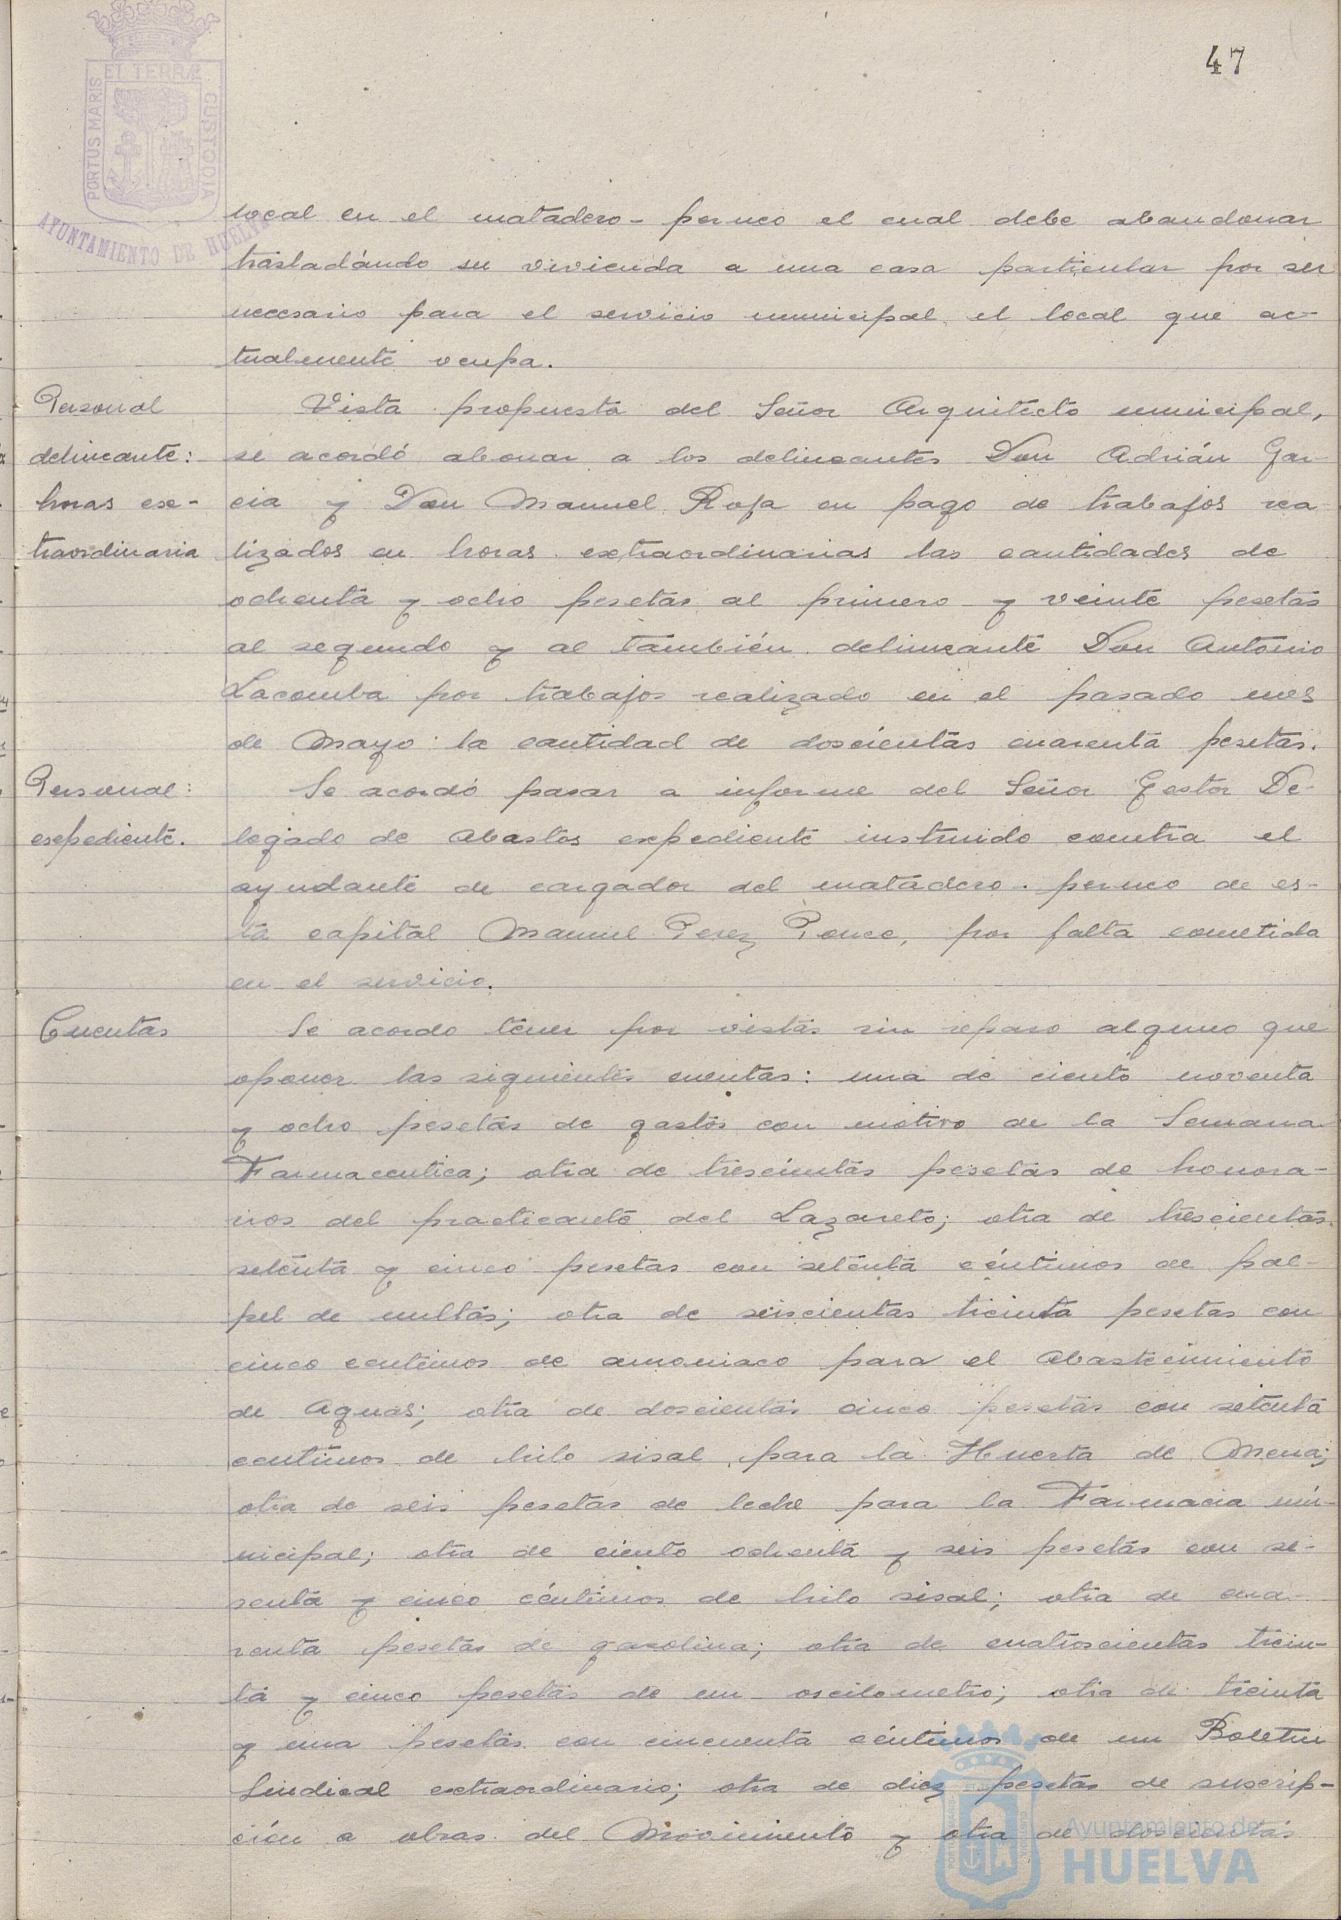 47
PORTUS MARIS ET TERRÆ CUSTODIA
AYUNTAMIENTO DE HUELVA
local en el matadero-perneo el cual debe abandonar
trasladándo su vivienda a una casa particular por ser
necesario para el servicio municipal el local que ac-
tualmente ocupa.
Personal
delineante:
horas ex-
traordinaria
Vista propuesta del Señor Arquitecto municipal,
se acordó abonar a los delineantes Don Adrián Gar-
cia y Don Manuel Rofa en pago de trabajos rea
lizados en horas extraordinarias las cantidades de
ochenta y ocho pesetas al primero y veinte pesetas
al segundo y al también delineante Don Antonio
Lacomba por trabajos realizado en el pasado mes
de Mayo la cantidad de doscientas cuarenta pesetas.
Personal:
expediente.
Se acordó pasar a informe del Señor Gestor De-
legado de Abastos expediente instruido contra el
ayudante de cargador del matadero-perneo de es-
ta capital Manuel Perez Ponce, por falta cometida
en el servicio.
Cuentas
Se acordo tener por vistas sin reparo alguno que
oponer las siguientes cuentas: una de ciento noventa
y ocho pesetas de gastos con motivo de la Semana
Farmaceutica; otra de trescientas pesetas de honora-
rios del practicante del Lazareto; otra de trescientas
setenta y cinco pesetas con setenta céntimos de pa-
pel de multas; otra de seiscientas treinta pesetas con
cinco centimos de amoniaco para el Abastecimiento
de Aguas; otra de doscientas cinco pesetas con setenta
centimos de hilo sisal para la Huerta de Mena;
otra de seis pesetas de leche para la Farmacia mu-
nicipal; otra de ciento ochenta y seis pesetas con se-
senta y cinco céntimos de hilo sisal; otra de cua-
renta pesetas de gasolina; otra de cuatroscientas trein-
ta y cinco pesetas de un oscilometro; otra de treinta
y una pesetas con cincuenta céntimos de un Boletin
Sindical extraordinario; otra de diez pesetas de suscrip-
ción a obras del Movimiento y otra de doscientas
Ayuntamiento de
HUELVA